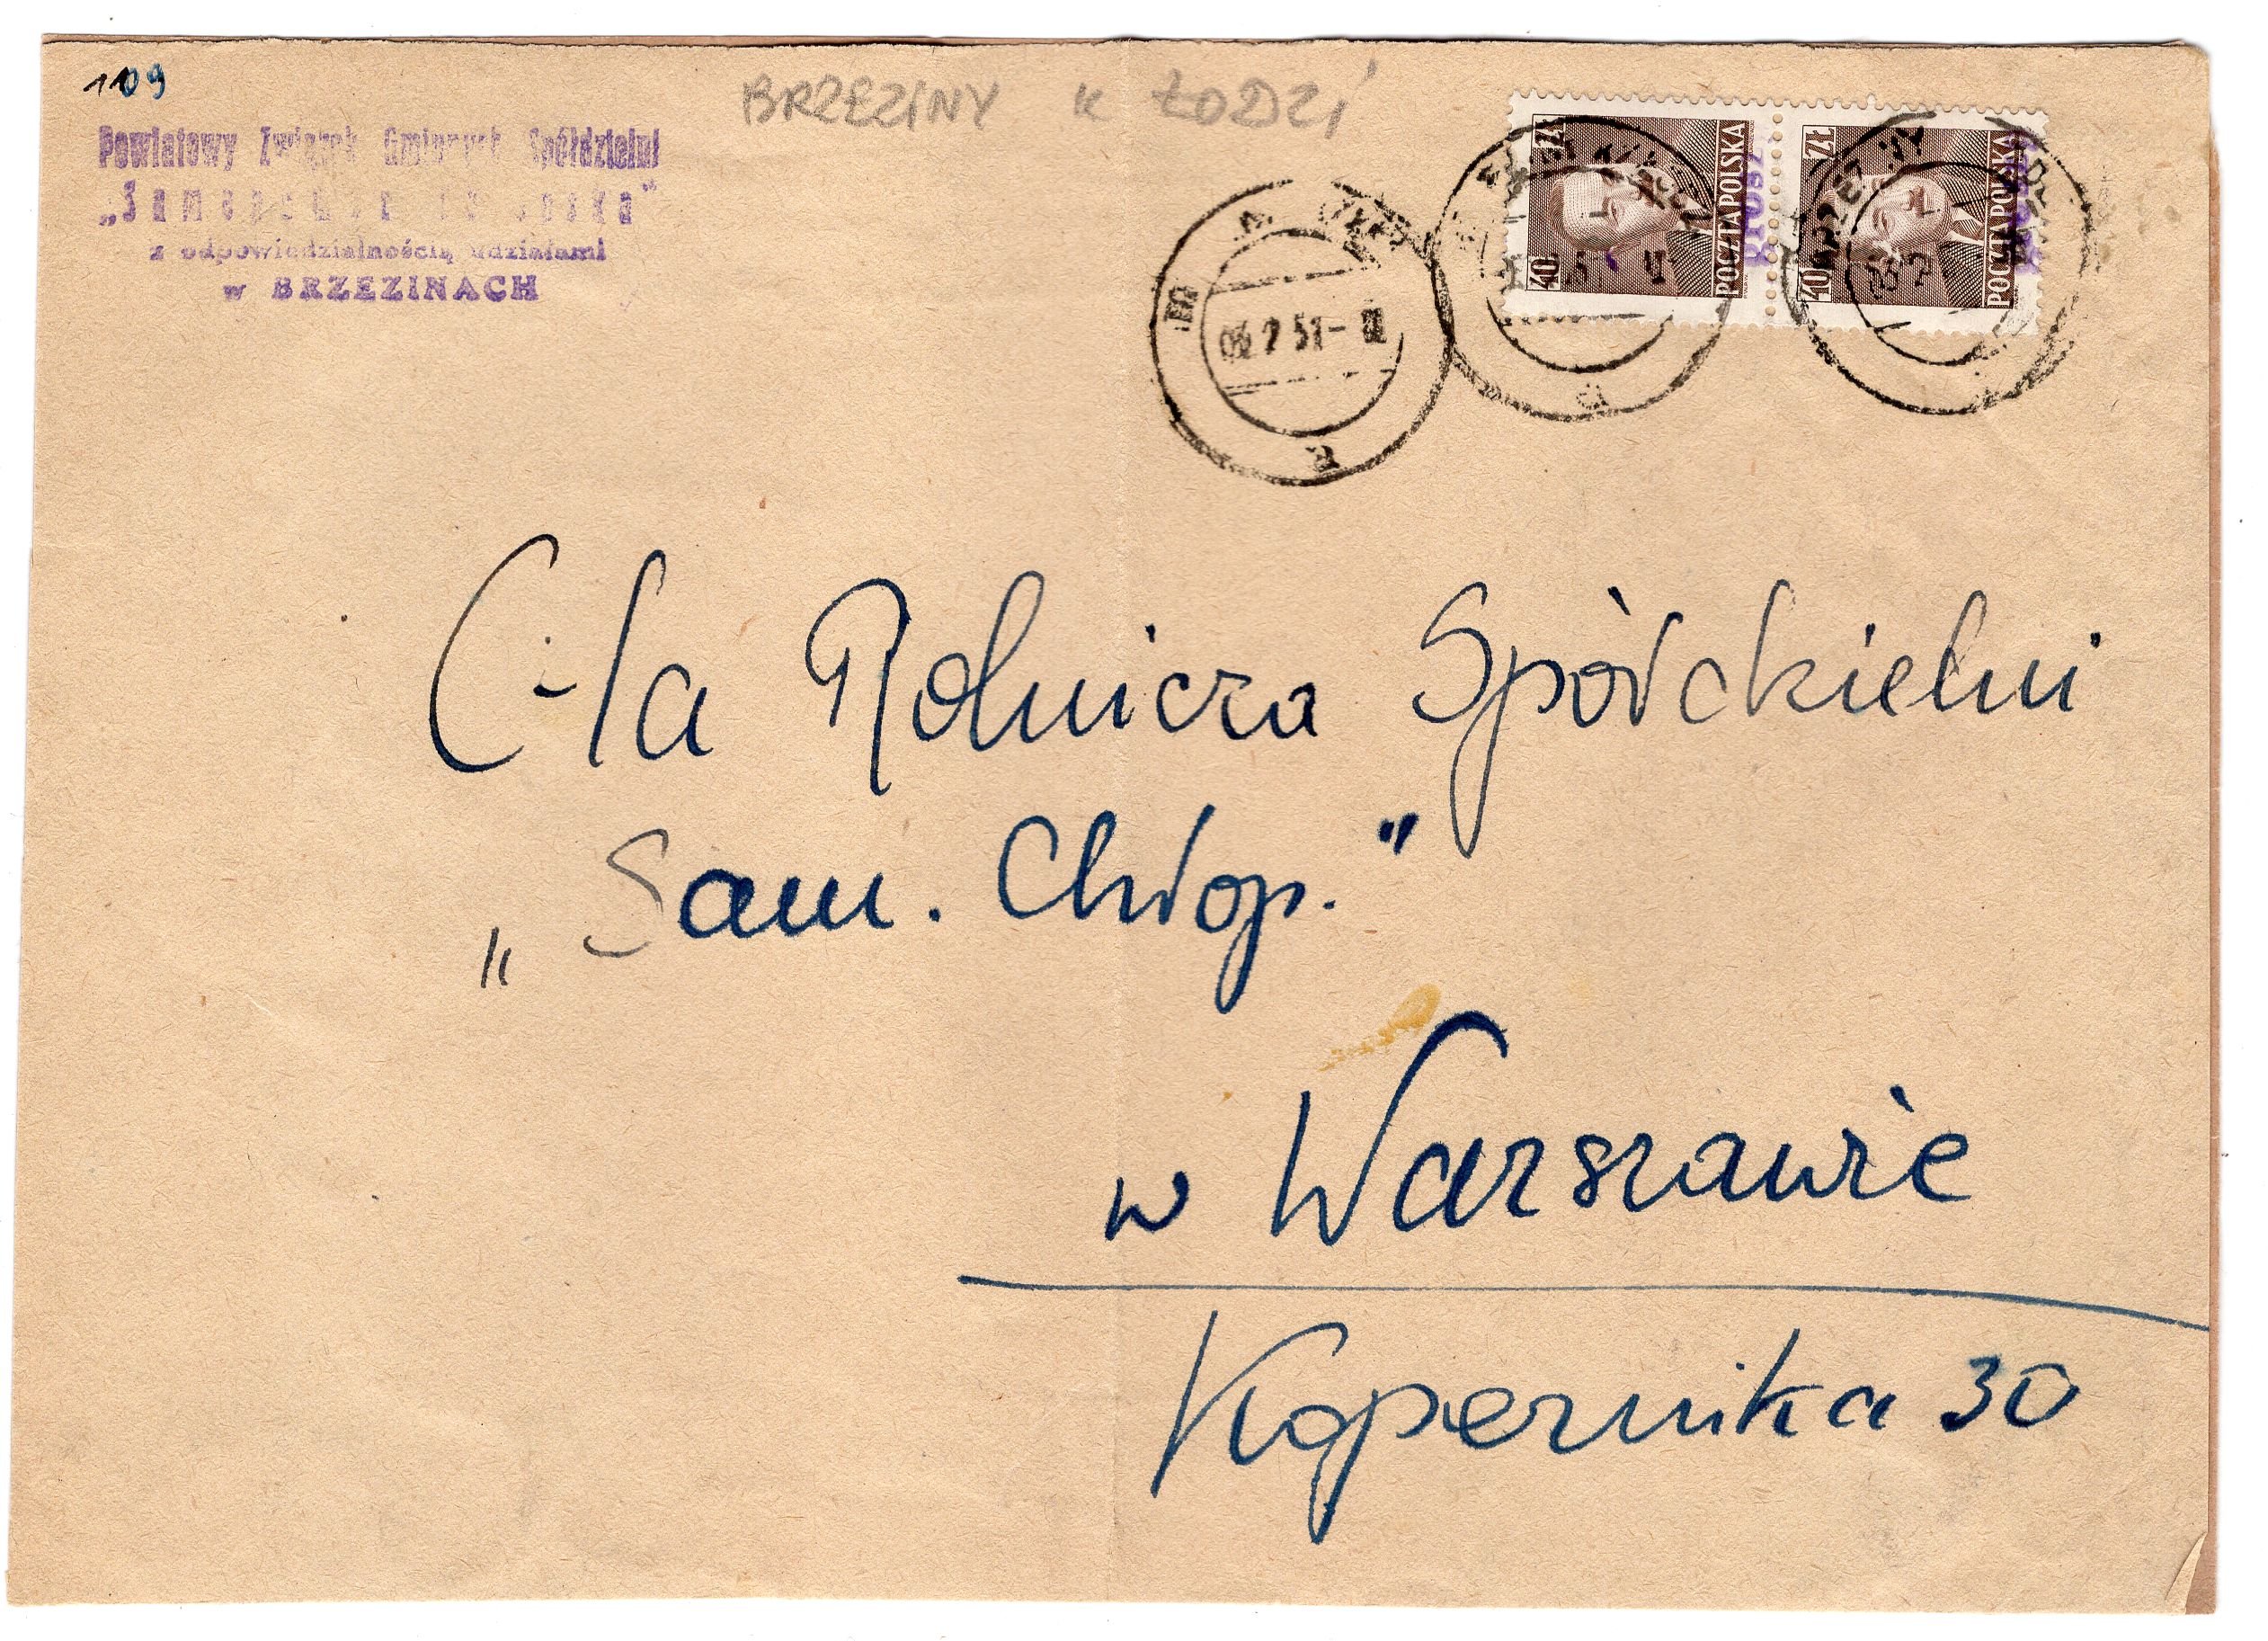 109
BRZEZINY k ŁODZI
Powiatowy Związek Gminnych Spółdzielni
„Samopomoc Chłopska”
z odpowiedzialnością udziałami
w BRZEZINACH
40 ZŁ
POCZTA POLSKA
40 ZŁ
POCZTA POLSKA
BRZEZINY
2 51
a
C-la Rolnicza Spółdzielni
„Sam. Chłop.”
w Warszawie
Kopernika 30